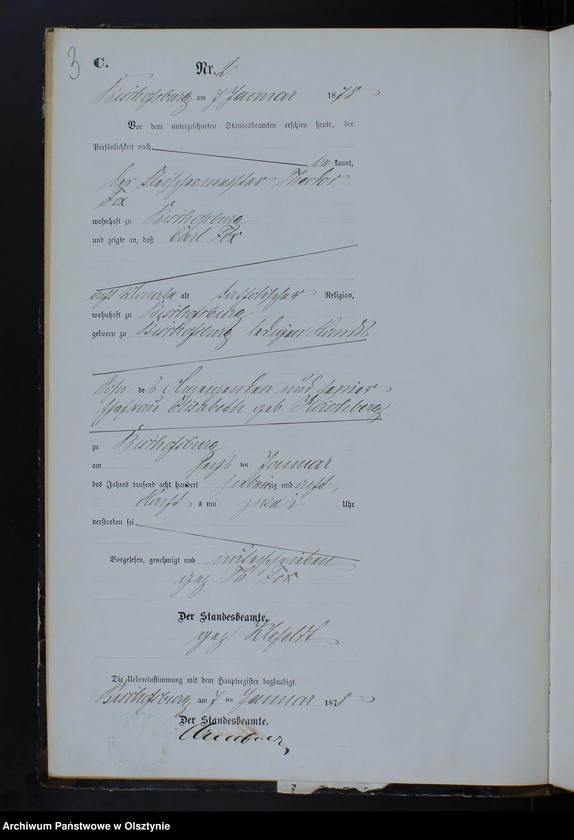 3 C.
Nr. 2
Bischofsburg am 7 Januar 1878
Vor dem unterzeichneten Standesbeamten erschien heute, der
Persönlichkeit nach
bekannt,
der Fleischermeister Theodor
Fox
wohnhaft zu Bischofsburg
und zeigte an, daß Carl Fox
acht Monate alt katholischer Religion,
wohnhaft zu Bischofsburg
geboren zu Bischofsburg ledigen Standes
Sohn des Anzeigenden und seiner
Ehefrau Elisabeth geb. Hirschberg
zu Bischofsburg
am sechs ten Januar
des Jahres tausend acht hundert siebenzig und acht,
Nachts um zwei Uhr
verstorben sei
Vorgelesen, genehmigt und unterschrieben
gez Th. Fox
Der Standesbeamte,
gez
Die Uebereinstimmung mit dem Hauptregister beglaubigt.
Bischofsburg am 7 ten Januar 1878
Der Standesbeamte.
Archiwum Państwowe w Olsztynie